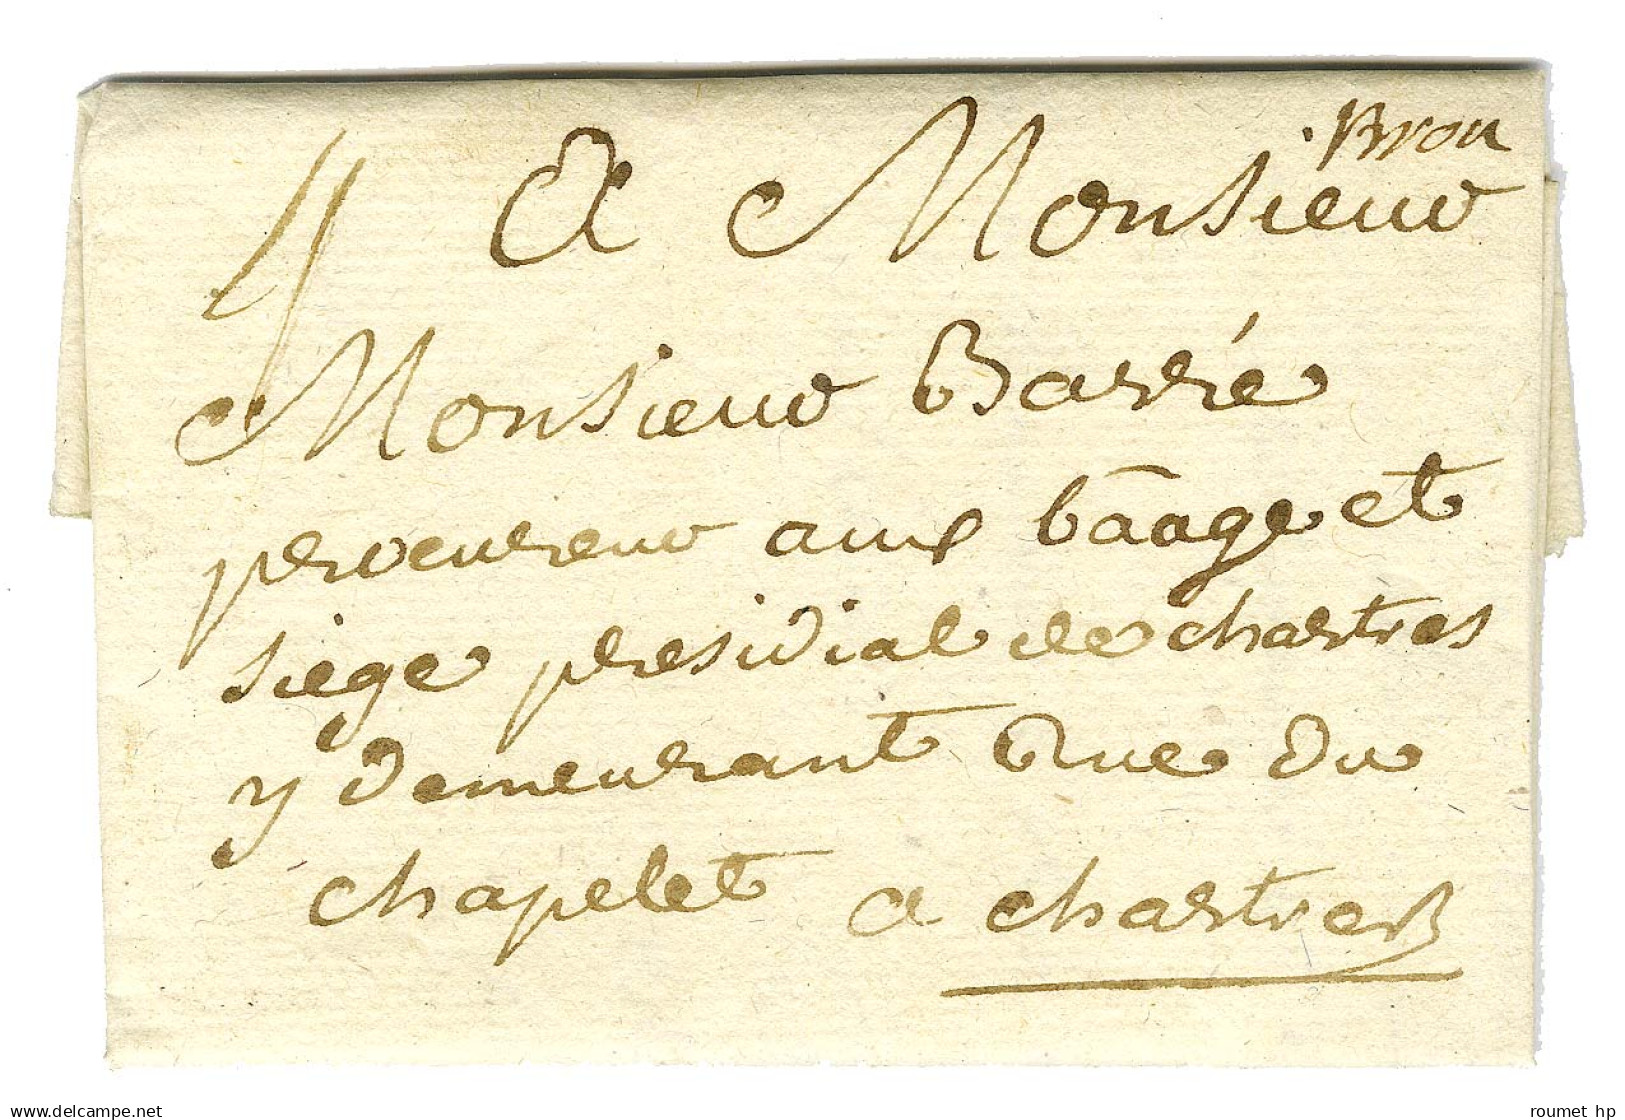 Brou
4
A Monsieur
Monsieur Barré
procureur aux bāage et
siege presidial de chartres
y demeurant Rue du
chapelet a chartres
www.delcampe.net
roumet hp